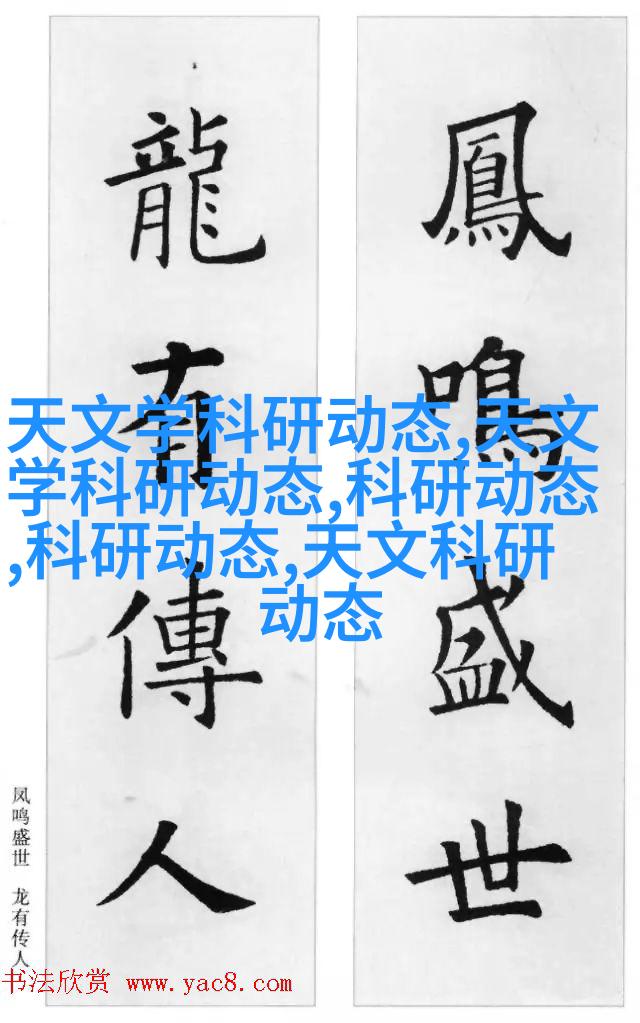 鳳鳴盛世
龍有傳人
天文学科研动态,天文
学科研动态,科研动态
,科研动态,天文科研
动态
凤鸣盛世 龙有传人
书法欣赏 www.yac8.com